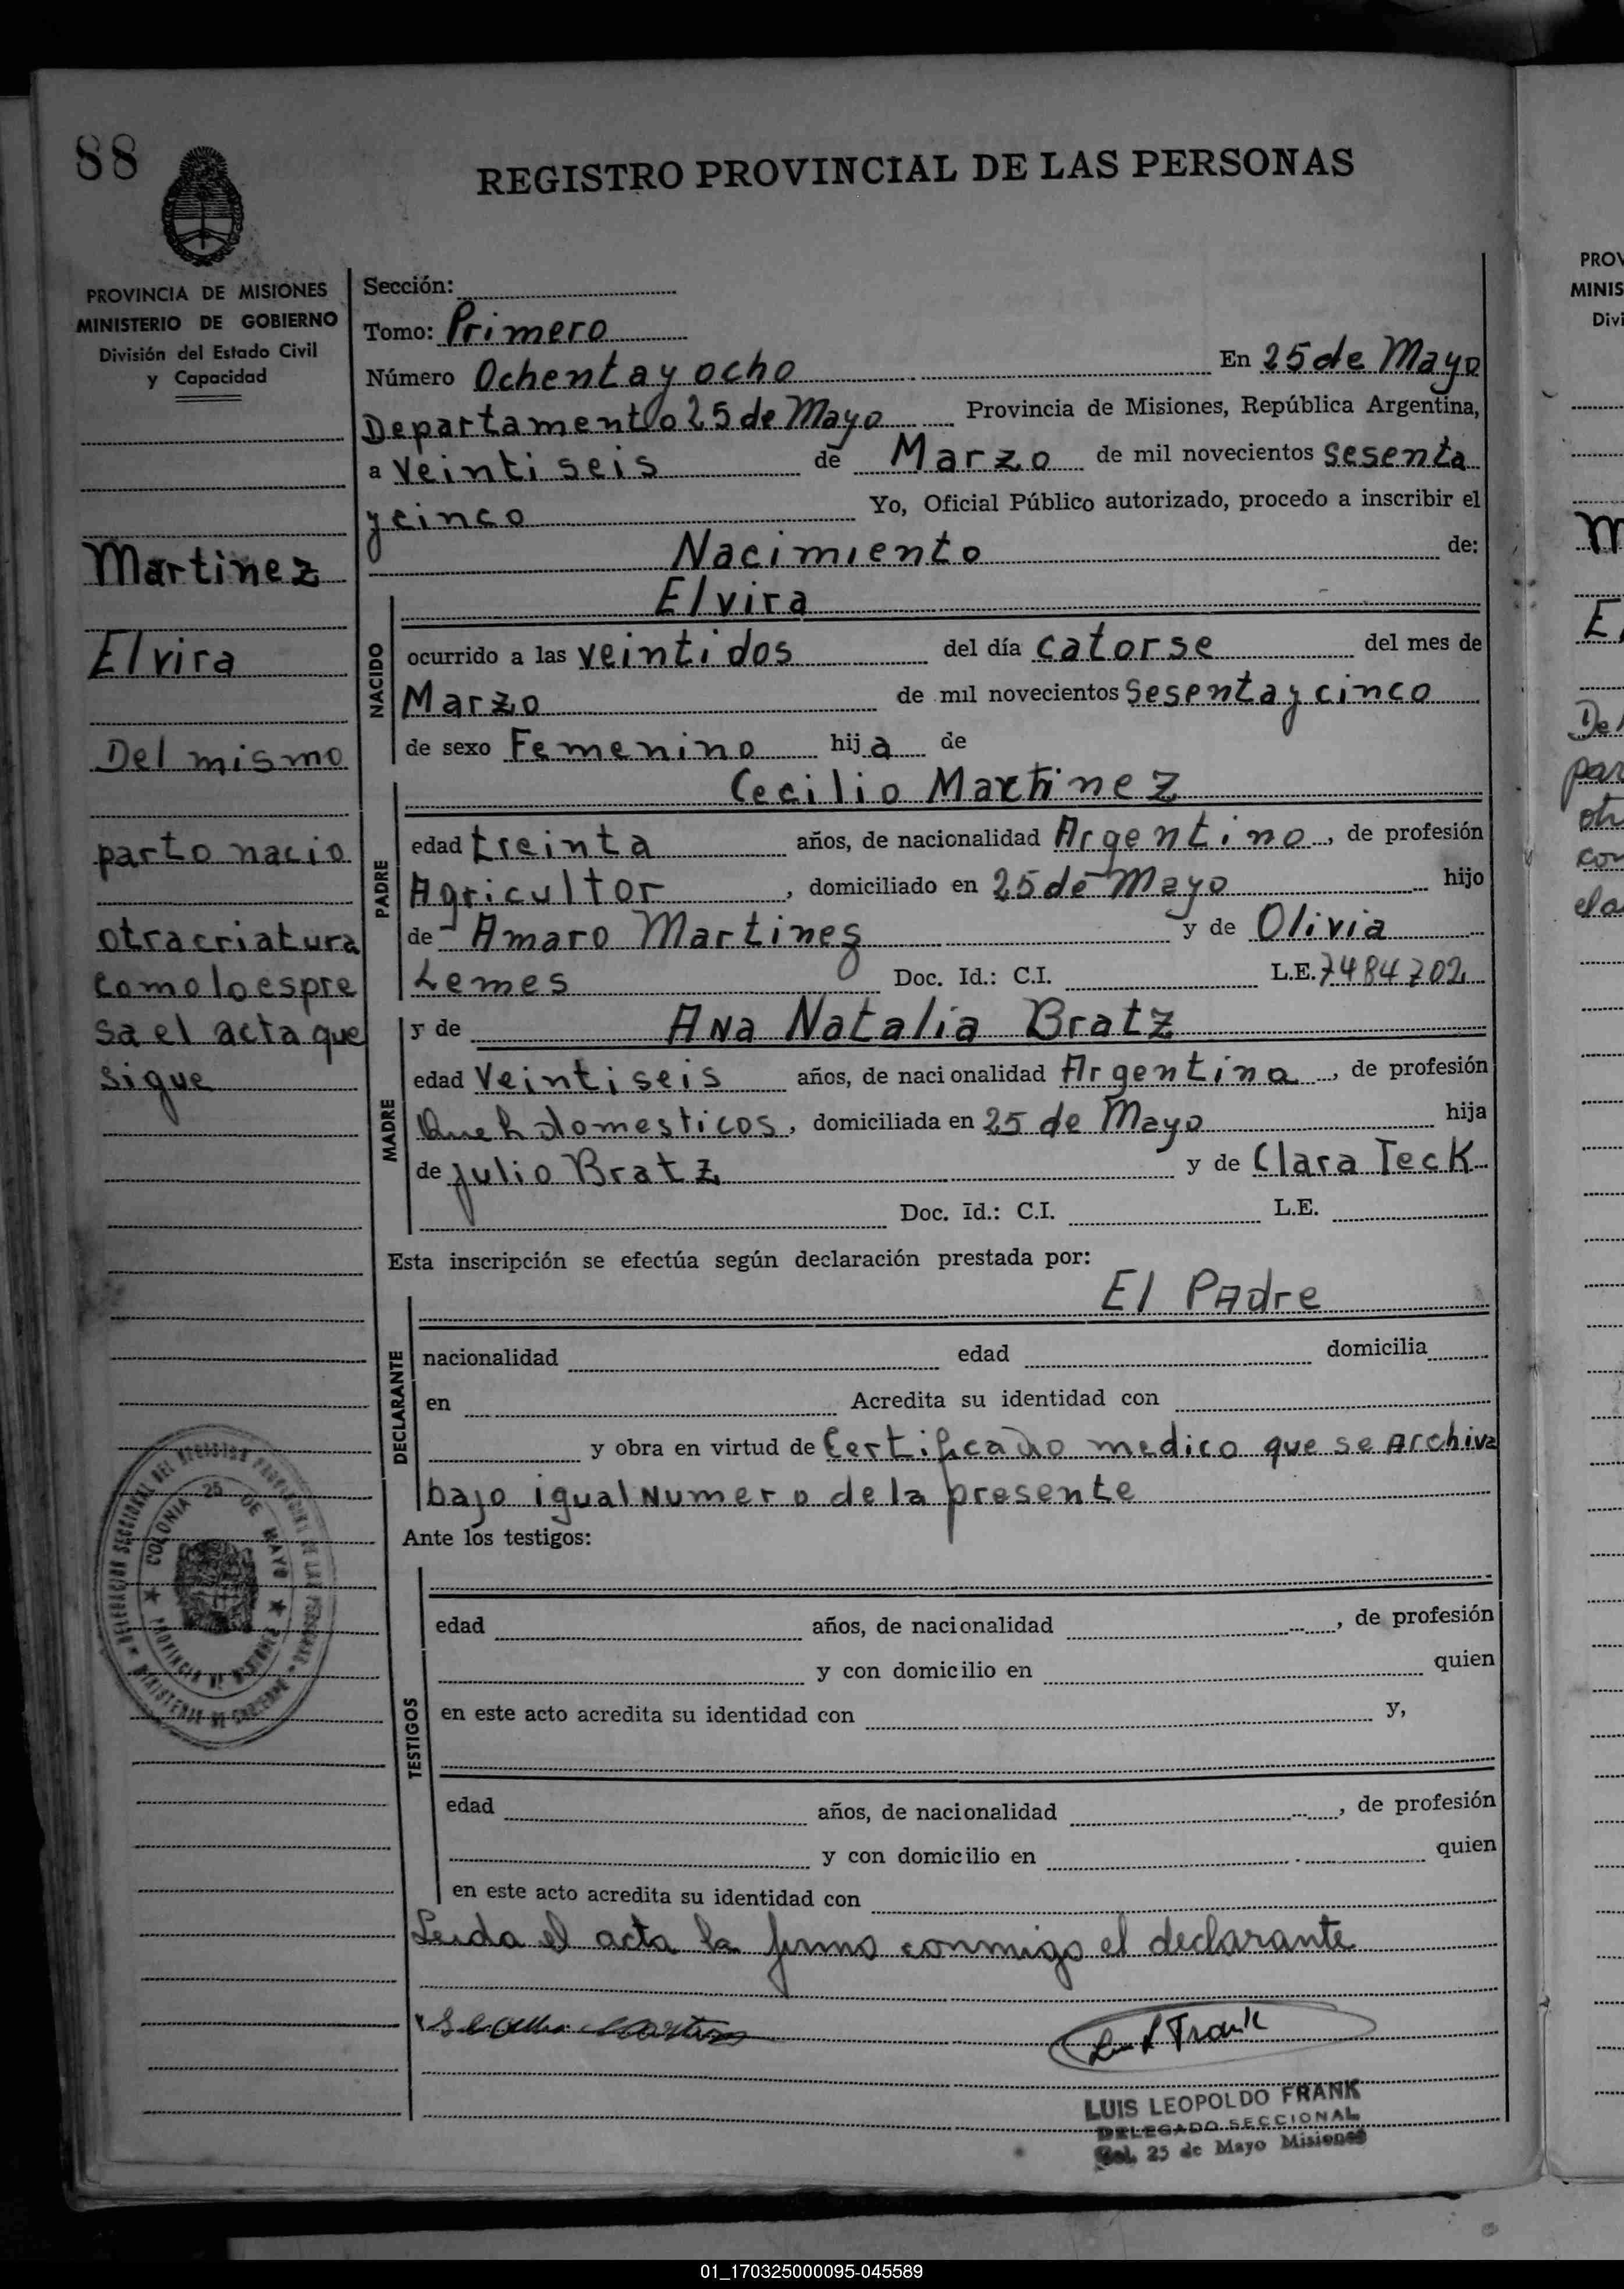 88
REGISTRO PROVINCIAL DE LAS PERSONAS
PROVINCIA DE MISIONES
MINISTERIO DE GOBIERNO
División del Estado Civil
y Capacidad
Martinez
Elvira
Del mismo
parto nacio
otra criatura
como lo espre
sa el acta que
sigue
Sección:
Tomo: Primero
Número Ochenta y ocho En 25 de Mayo
Departamento 25 de Mayo Provincia de Misiones, República Argentina,
a veinti seis de Marzo de mil novecientos sesenta
y cinco Yo, Oficial Público autorizado, procedo a inscribir el
Nacimiento de:
Elvira
NACIDO
ocurrido a las veinti dos del día catorse del mes de
Marzo de mil novecientos Sesenta y cinco
de sexo Femenino hija de
PADRE
Cecilio Martinez
edad treinta años, de nacionalidad Argentino, de profesión
Agricultor, domiciliado en 25 de Mayo hijo
de Amaro Martines y de Olivia
Lemes Doc. Id.: C.I. L.E. 7484702
MADRE
y de Ana Natalia Bratz
edad Veinti seis años, de nacionalidad Argentina, de profesión
Queh domesticos, domiciliada en 25 de Mayo hija
de Julio Bratz y de Clara Teck
Doc. Id.: C.I. L.E.
Esta inscripción se efectúa según declaración prestada por:
DECLARANTE
El Padre
nacionalidad edad domicilia
en Acredita su identidad con
y obra en virtud de Certificado medico que se Archiva
bajo igual Numero de la presente
Ante los testigos:
TESTIGOS
edad años, de nacionalidad , de profesión
y con domicilio en quien
en este acto acredita su identidad con y,
edad años, de nacionalidad , de profesión
y con domicilio en quien
en este acto acredita su identidad con
Leida el acta la firma conmigo el declarante
Martinez
L L Frank
LUIS LEOPOLDO FRANK
DELEGADO SECCIONAL
Col. 25 de Mayo Misiones
DELEGACION SECCIONAL DEL REGISTRO PROVINCIAL DE LAS PERSONAS
MINISTERIO DE GOBIERNO
COLONIA 25 DE MAYO
PROVINCIA DE MISIONES
PROV
MINIS
Divi
M
El
De
par
otr
con
el a
01_170325000095-045589